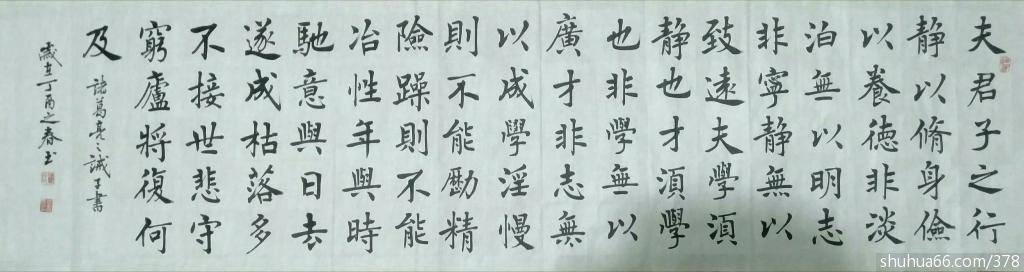 夫君子之行
静以脩身儉
以養德非淡
泊無以明志
非寧静無以
致遠夫學須
静也才須學
也非學無以
廣才非志無
以成學淫慢
則不能勵精
險躁則不能
冶性年與時
馳意與日去
遂成枯落多
不接世悲守
窮廬將復何
及
諸葛亮誡子書
歲在丁酉之春玉
shuhua66.com/378